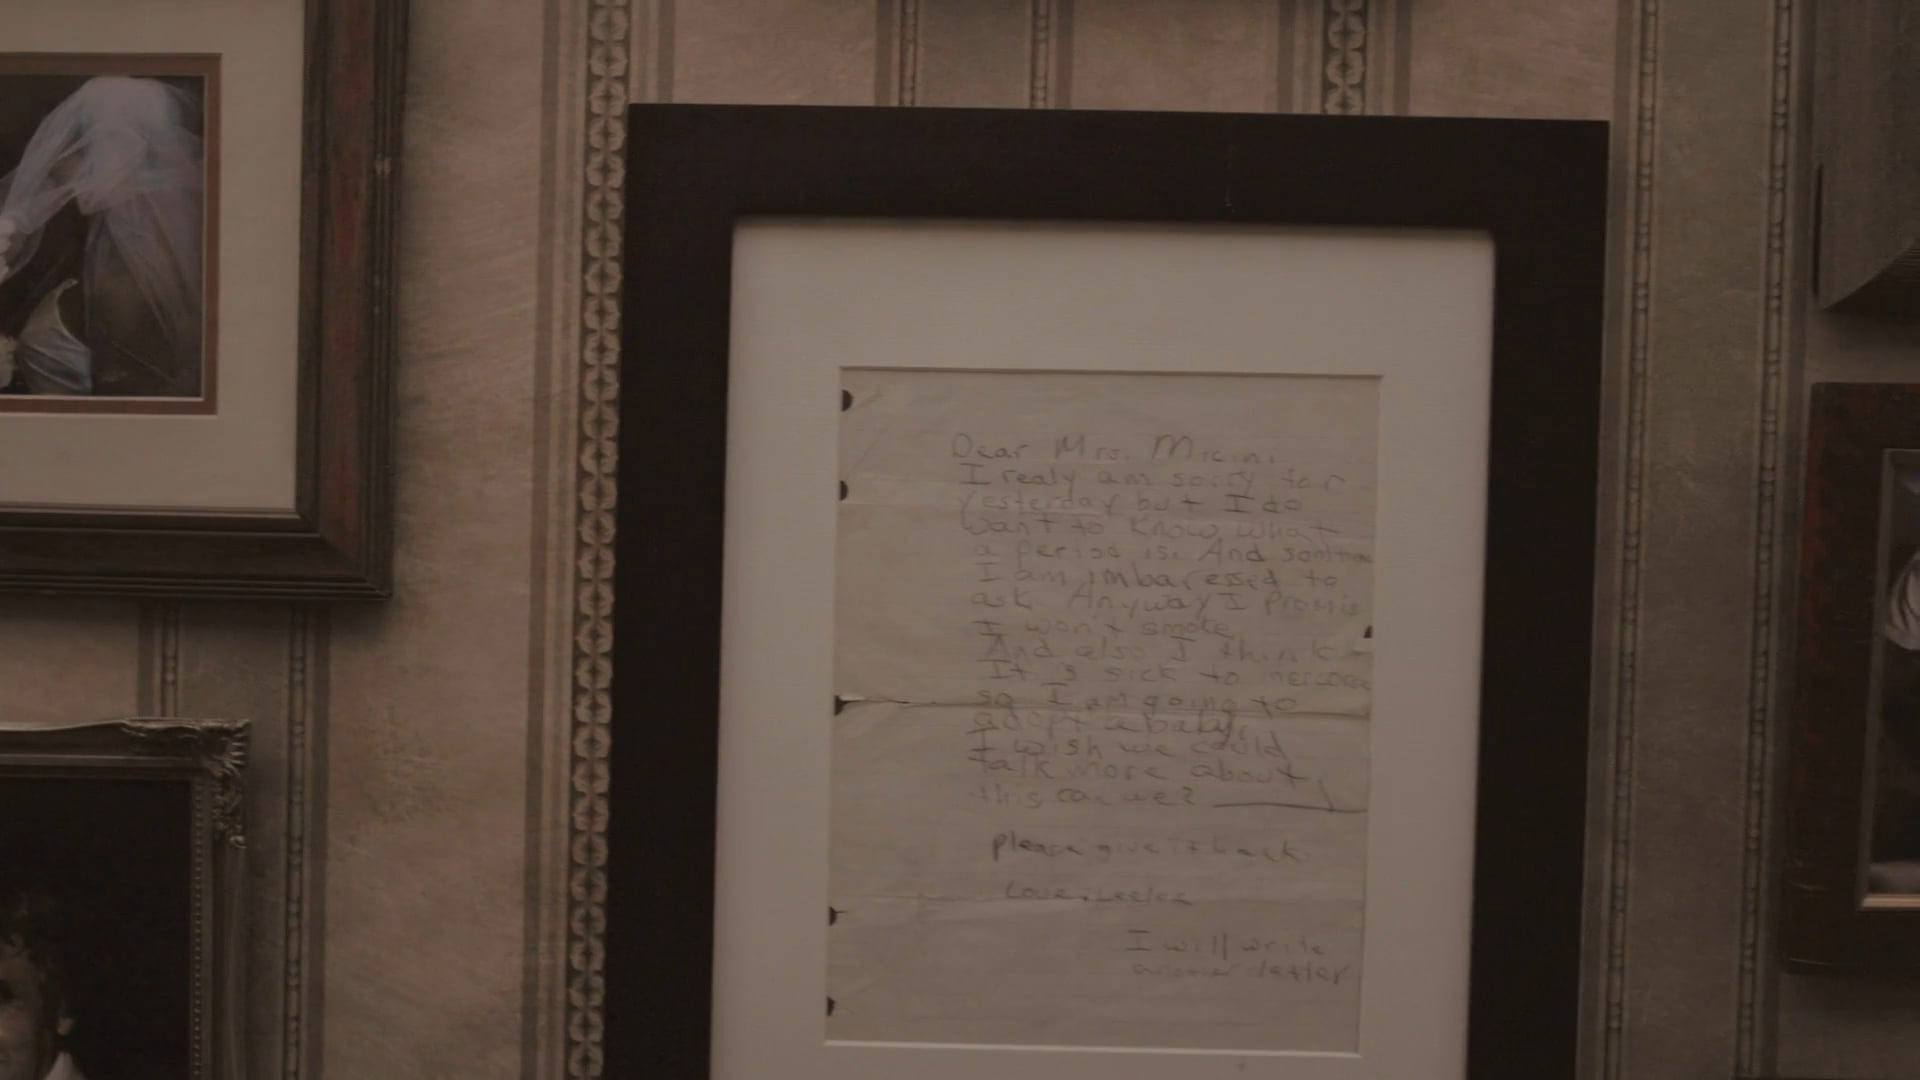 Dear Mrs. Micini
I realy am sorry for
yesterday but I do
want to know what
a period is. And somtime
I am imbaressed to
ask. Anyway I promis
I won't smoke
And also I think
It's sick to
so I am going to
adopt a baby.
I wish we could
talk more about
this can we?
please give it back
Love, Leelee
I will write
another letter